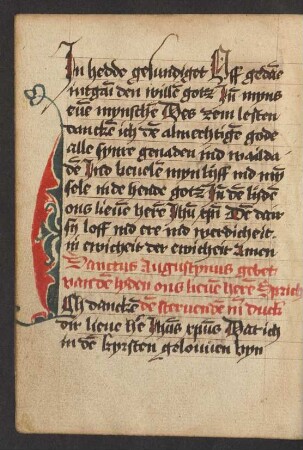 In hedde gesundiget Off gedāē
intgāī den wille gotz In myns
euē mynschē Des zem lesten
dancke ich dē almechtige gode
alle synre genaden ind
dē Ind beuelen myn lyff ind myn
sele in de hende gotz In dē lydē
ons lieuē herē Ihū xpī De dair
sy loff ind ere ind werdicheit
in ewicheit der ewicheit Amen
Sanctus Augustynus gebet
van dē lyden ons lieuē herē Sprich
Ich dancke dē steruendē in druck
dir lieue hē Ihūs xpūs Dat ich
in dē kyrsten gelouuen byn